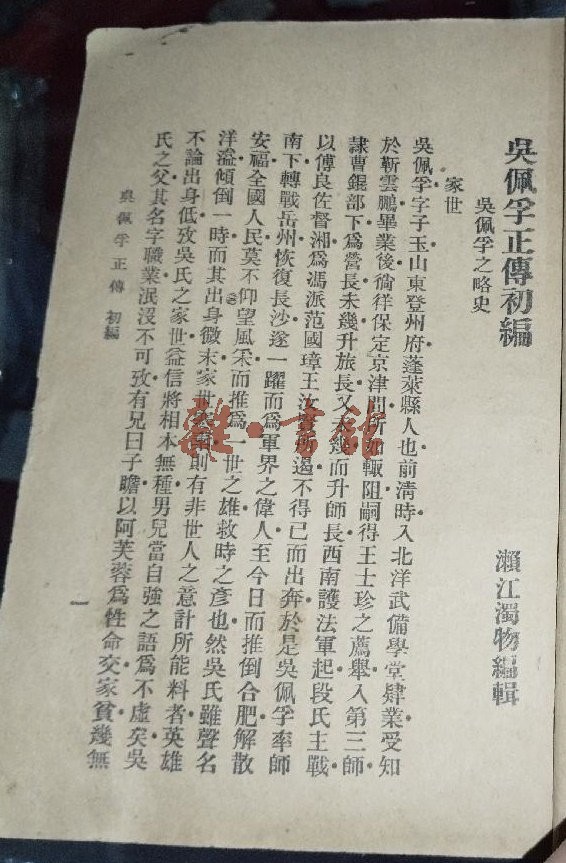 吳佩孚正傳初編
瀨江濁物編輯
吳佩孚之略史
家世
吳佩孚字子玉山東登州府蓬萊縣人也前清時入北洋武備學堂肄業受知
於靳雲鵬畢業後徜徉保定京津間所如輒阻嗣得王士珍之薦舉入第三師
隸曹錕部下爲營長未幾升旅長又未幾而升師長西南護法軍起段氏主戰
以傅良佐督湘爲馮派范國璋王汝賢所遏不得已而出奔於是吳佩孚率師
南下轉戰岳州恢復長沙遂一躍而爲軍界之偉人至今日而推倒合肥解散
安福全國人民莫不仰望風采而推爲一世之雄救時之彥也然吳氏雖聲名
洋溢傾倒一時而其出身微末家世則有非世人之意計所能料者英雄
不論出身低攷吳氏之家世益信將相本無種男兒當自強之語爲不虛矣吳
氏之父其名字職業泯沒不可攷有兄曰子瞻以阿芙蓉爲性命交家貧幾無
吳佩孚正傳 初編
一
雜·書館